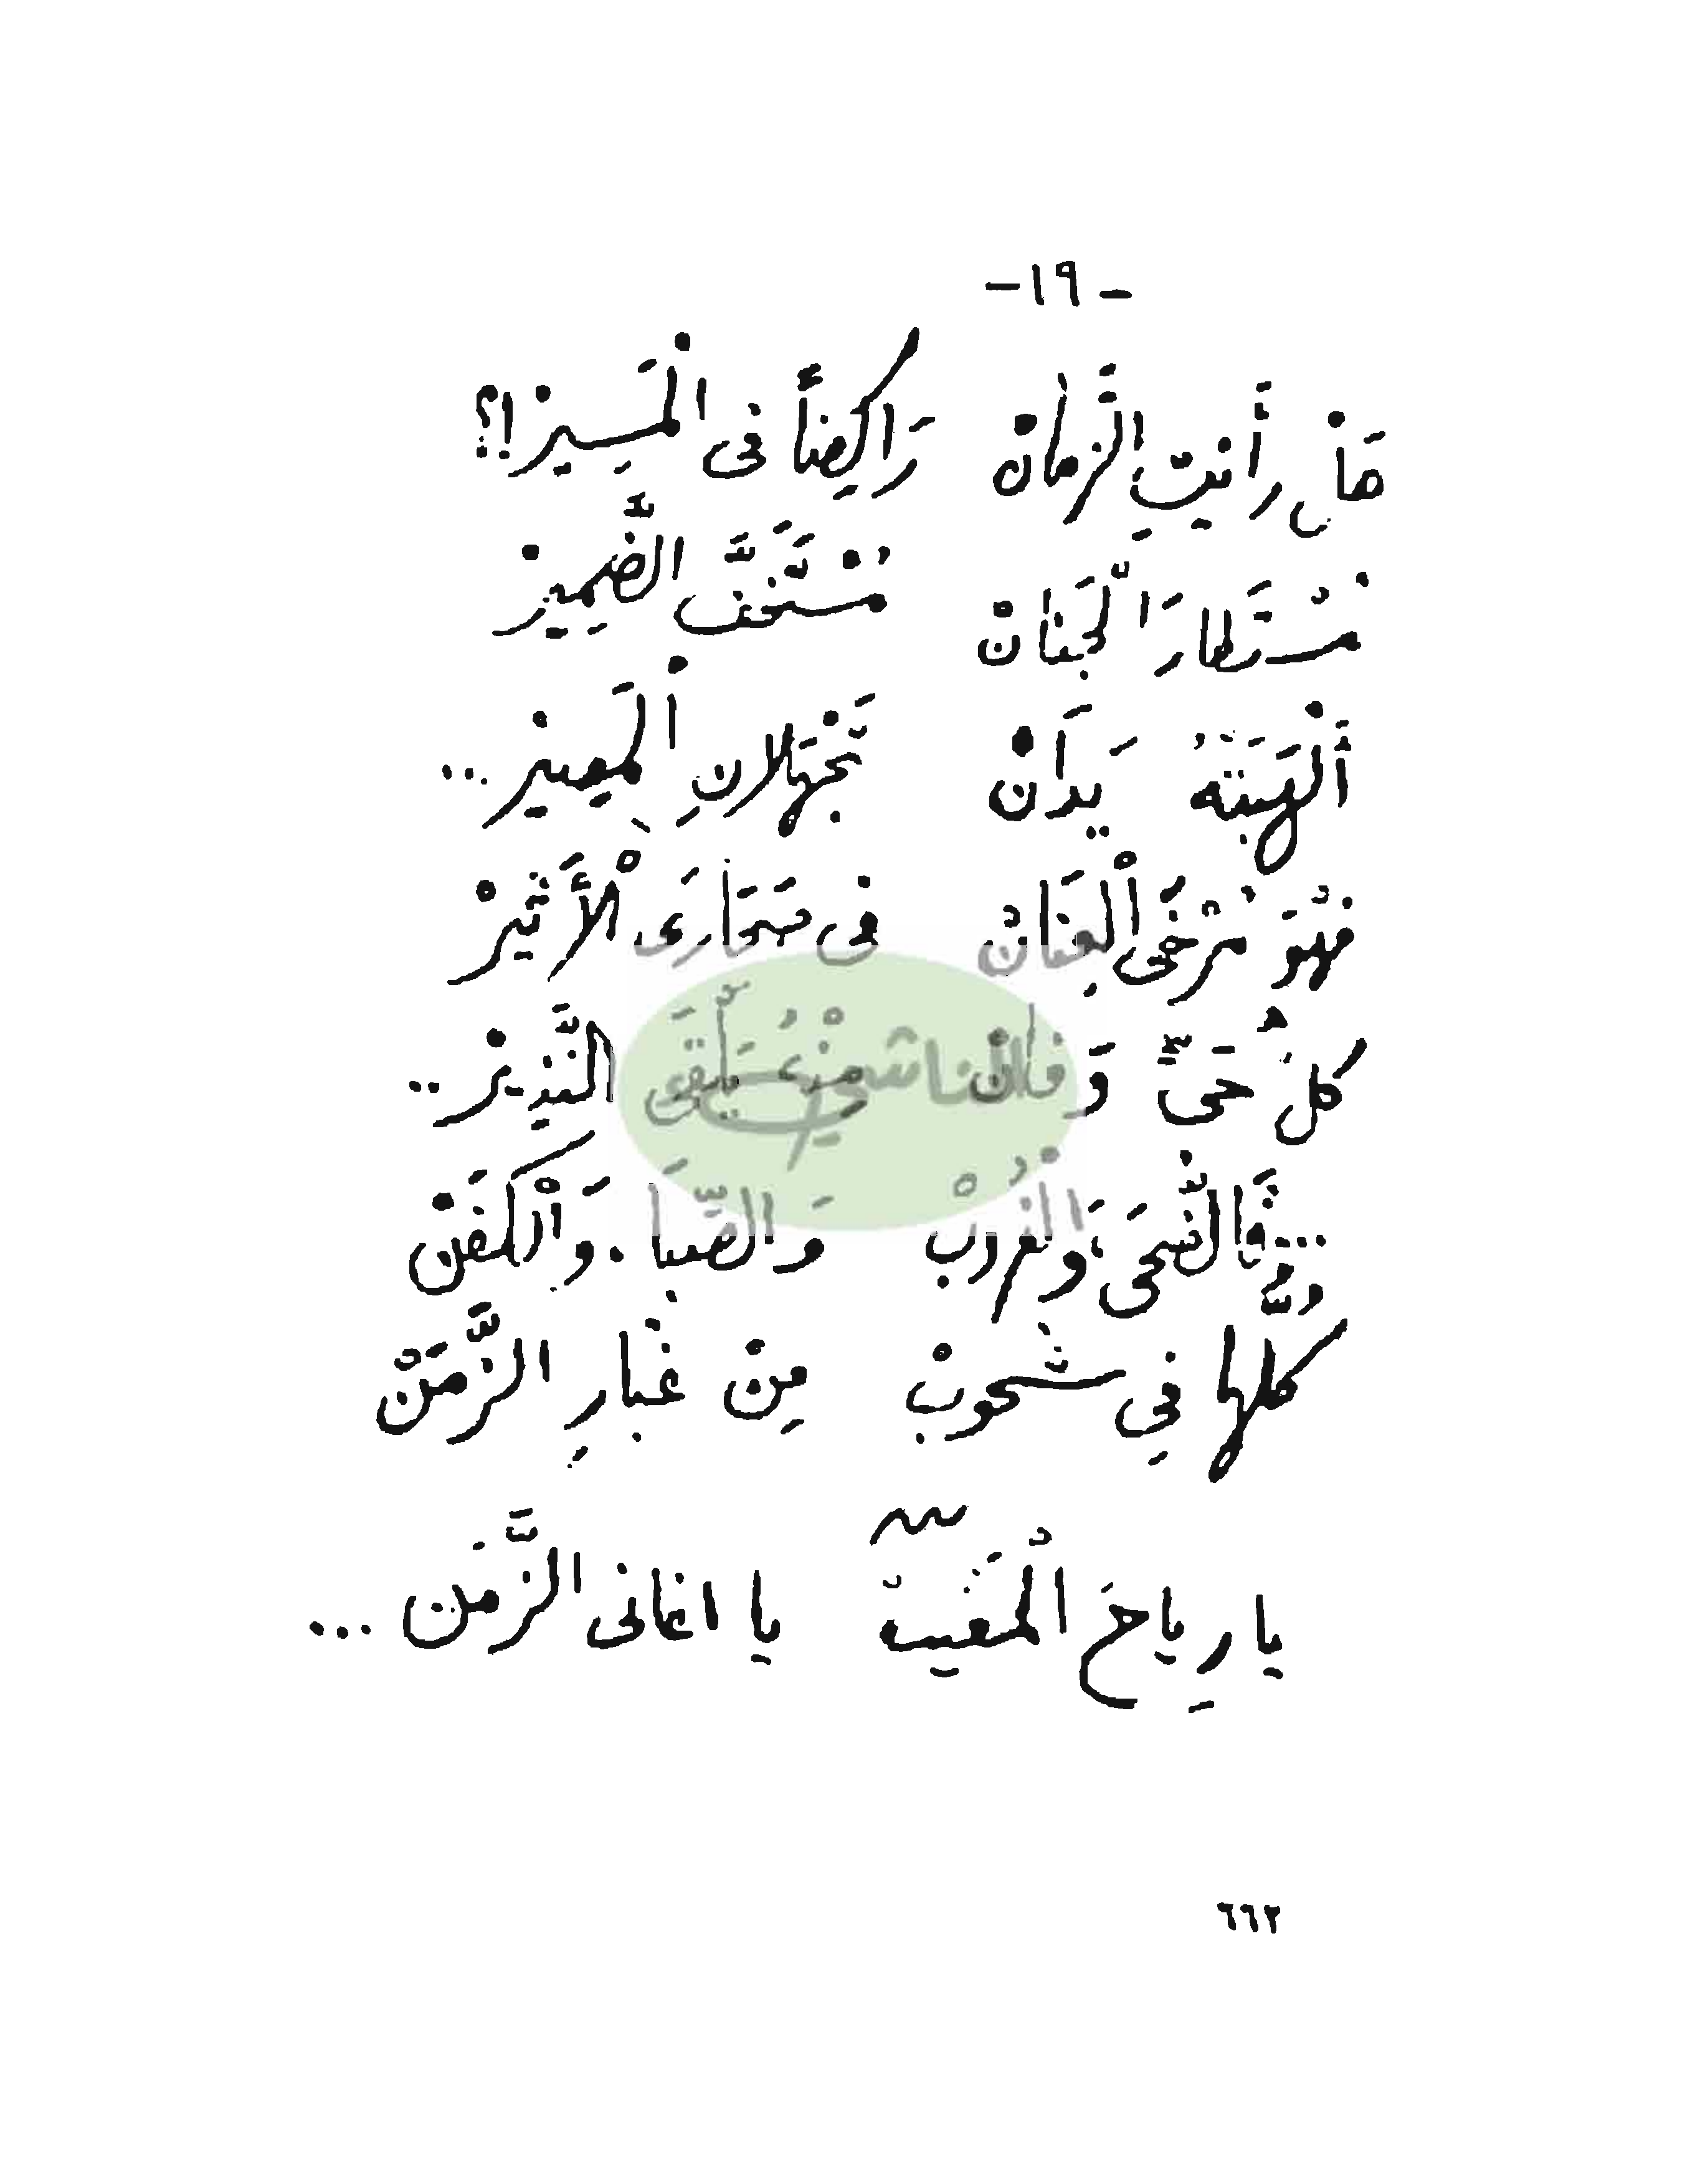 - ١٩ -
هَلْ رَأَيْتِ الزَّمَانْ رَاكِضاً فى الْمَسِيرْ!؟
مُسْتَطَارَ الْجَنَانْ مُسْتَخَفَّ الضَّمِيرْ
أَلْهَبَتْهُ يَدَانْ تَجْهَلانِ الْمَصِيرْ...
فَهْوَ مُرْخَى الْعِنَانْ فى صَحَارَى الْأَثِيرْ
كلُّ حَىٍّ وَفَانْ مِنْهُ يَلْقَى النَّذِيرْ..
...فَالضُّحَى، وَالْغُرُوبْ وَالصِّبَا. وَالْكَفَنْ
كُلُّهَا فِي شُحُوبْ مِنْ غُبَارِ الزَّمَنْ
يا رِياحَ الْمَغيبْ يا اغانى الزَّمَن...
٦٦٢